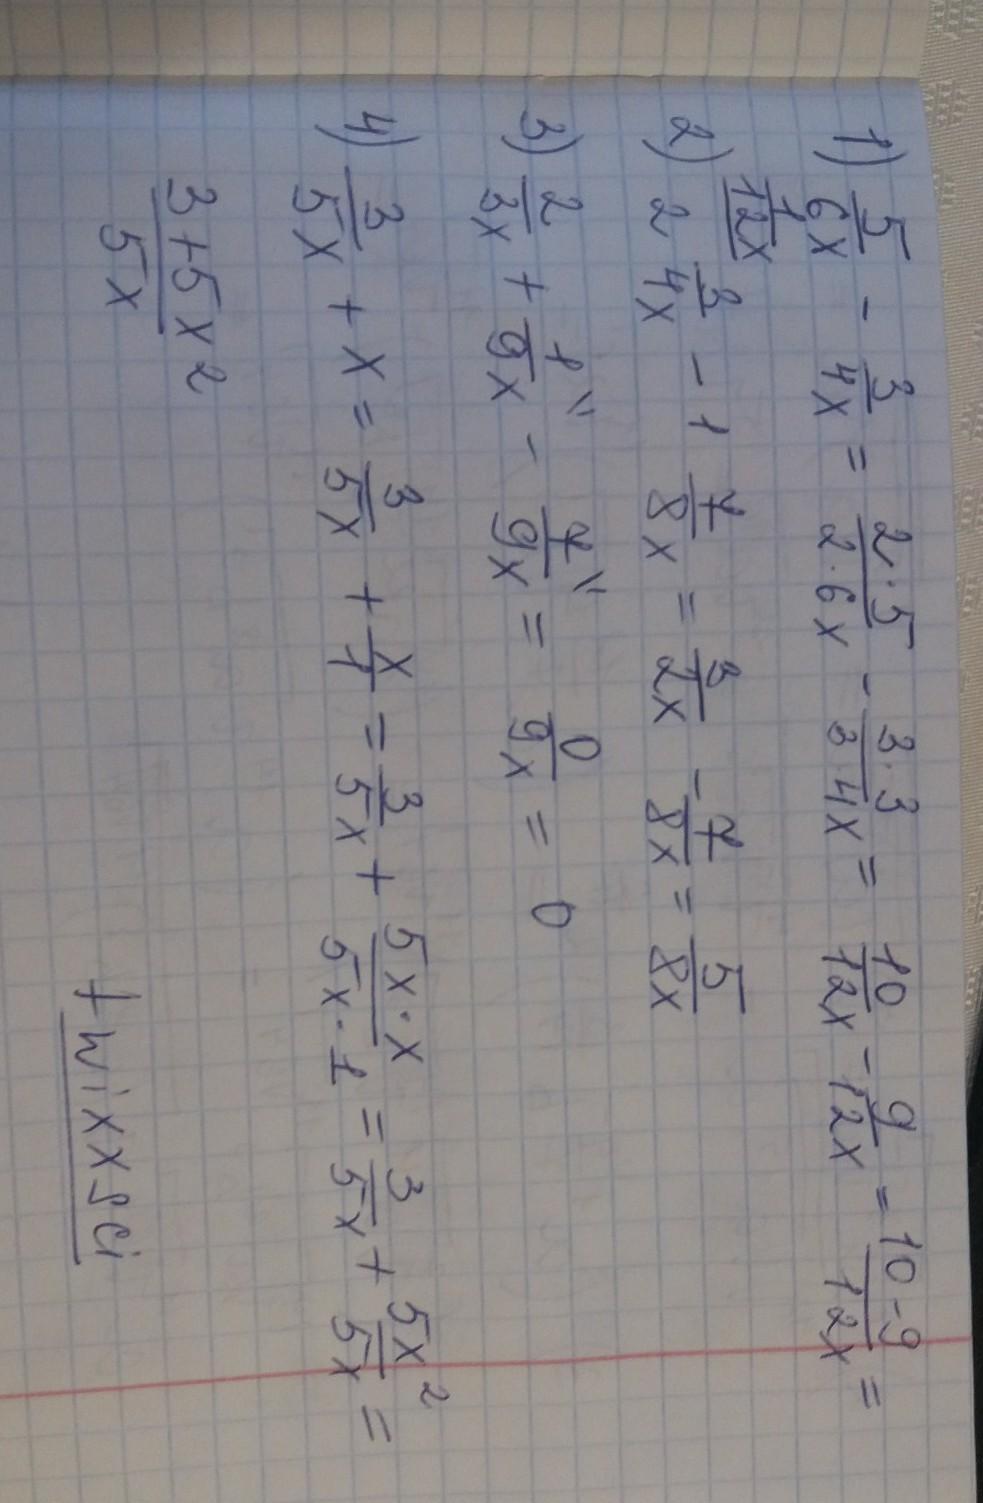 1) 5/6x - 3/4x = 2·5/2·6x - 3·3/3·4x = 10/12x - 9/12x = 10-9/12x =
1/12x
2) 2 3/4x - 1 7/8x = 3/2x - 7/8x = 5/8x
3) 2/3x + 1"/9x - 7"/9x = 0/9x = 0
4) 3/5x + x = 3/5x + x/1 = 3/5x + 5x·x/5x·1 = 3/5x + 5x²/5x =
3+5x²/5x